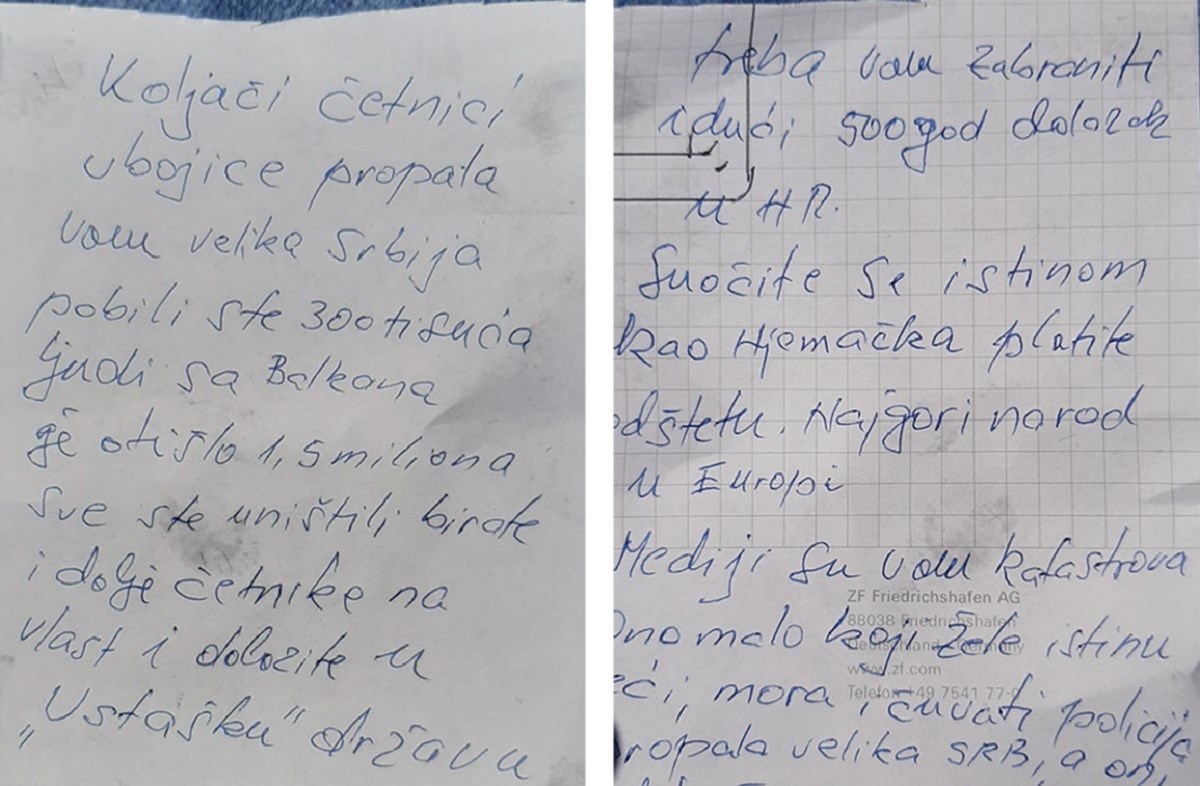 Koljači četnici
ubojice propala
vam velika Srbija
pobili ste 300 tisuća
ljudi sa Balkana
je otišlo 1,5 miliona
sve ste uništili birate
i dolje četnike na
vlast i dolazite u
„Ustašku" državu
treba vam zabraniti
idući 500 god dolazak
u HR.
Suočite se istinom
kao Njemačka platite
odštetu. Najgori narod
u Europi
Mediji su vam katastrova
Ono malo koji žele istinu
eći, mora i čuvati policija
ropala velika SRB, a on,
ZF Friedrichshafen AG
88038 Friedrichshafen
Deutschland
www.zf.com
Telefon +49 7541 77-0